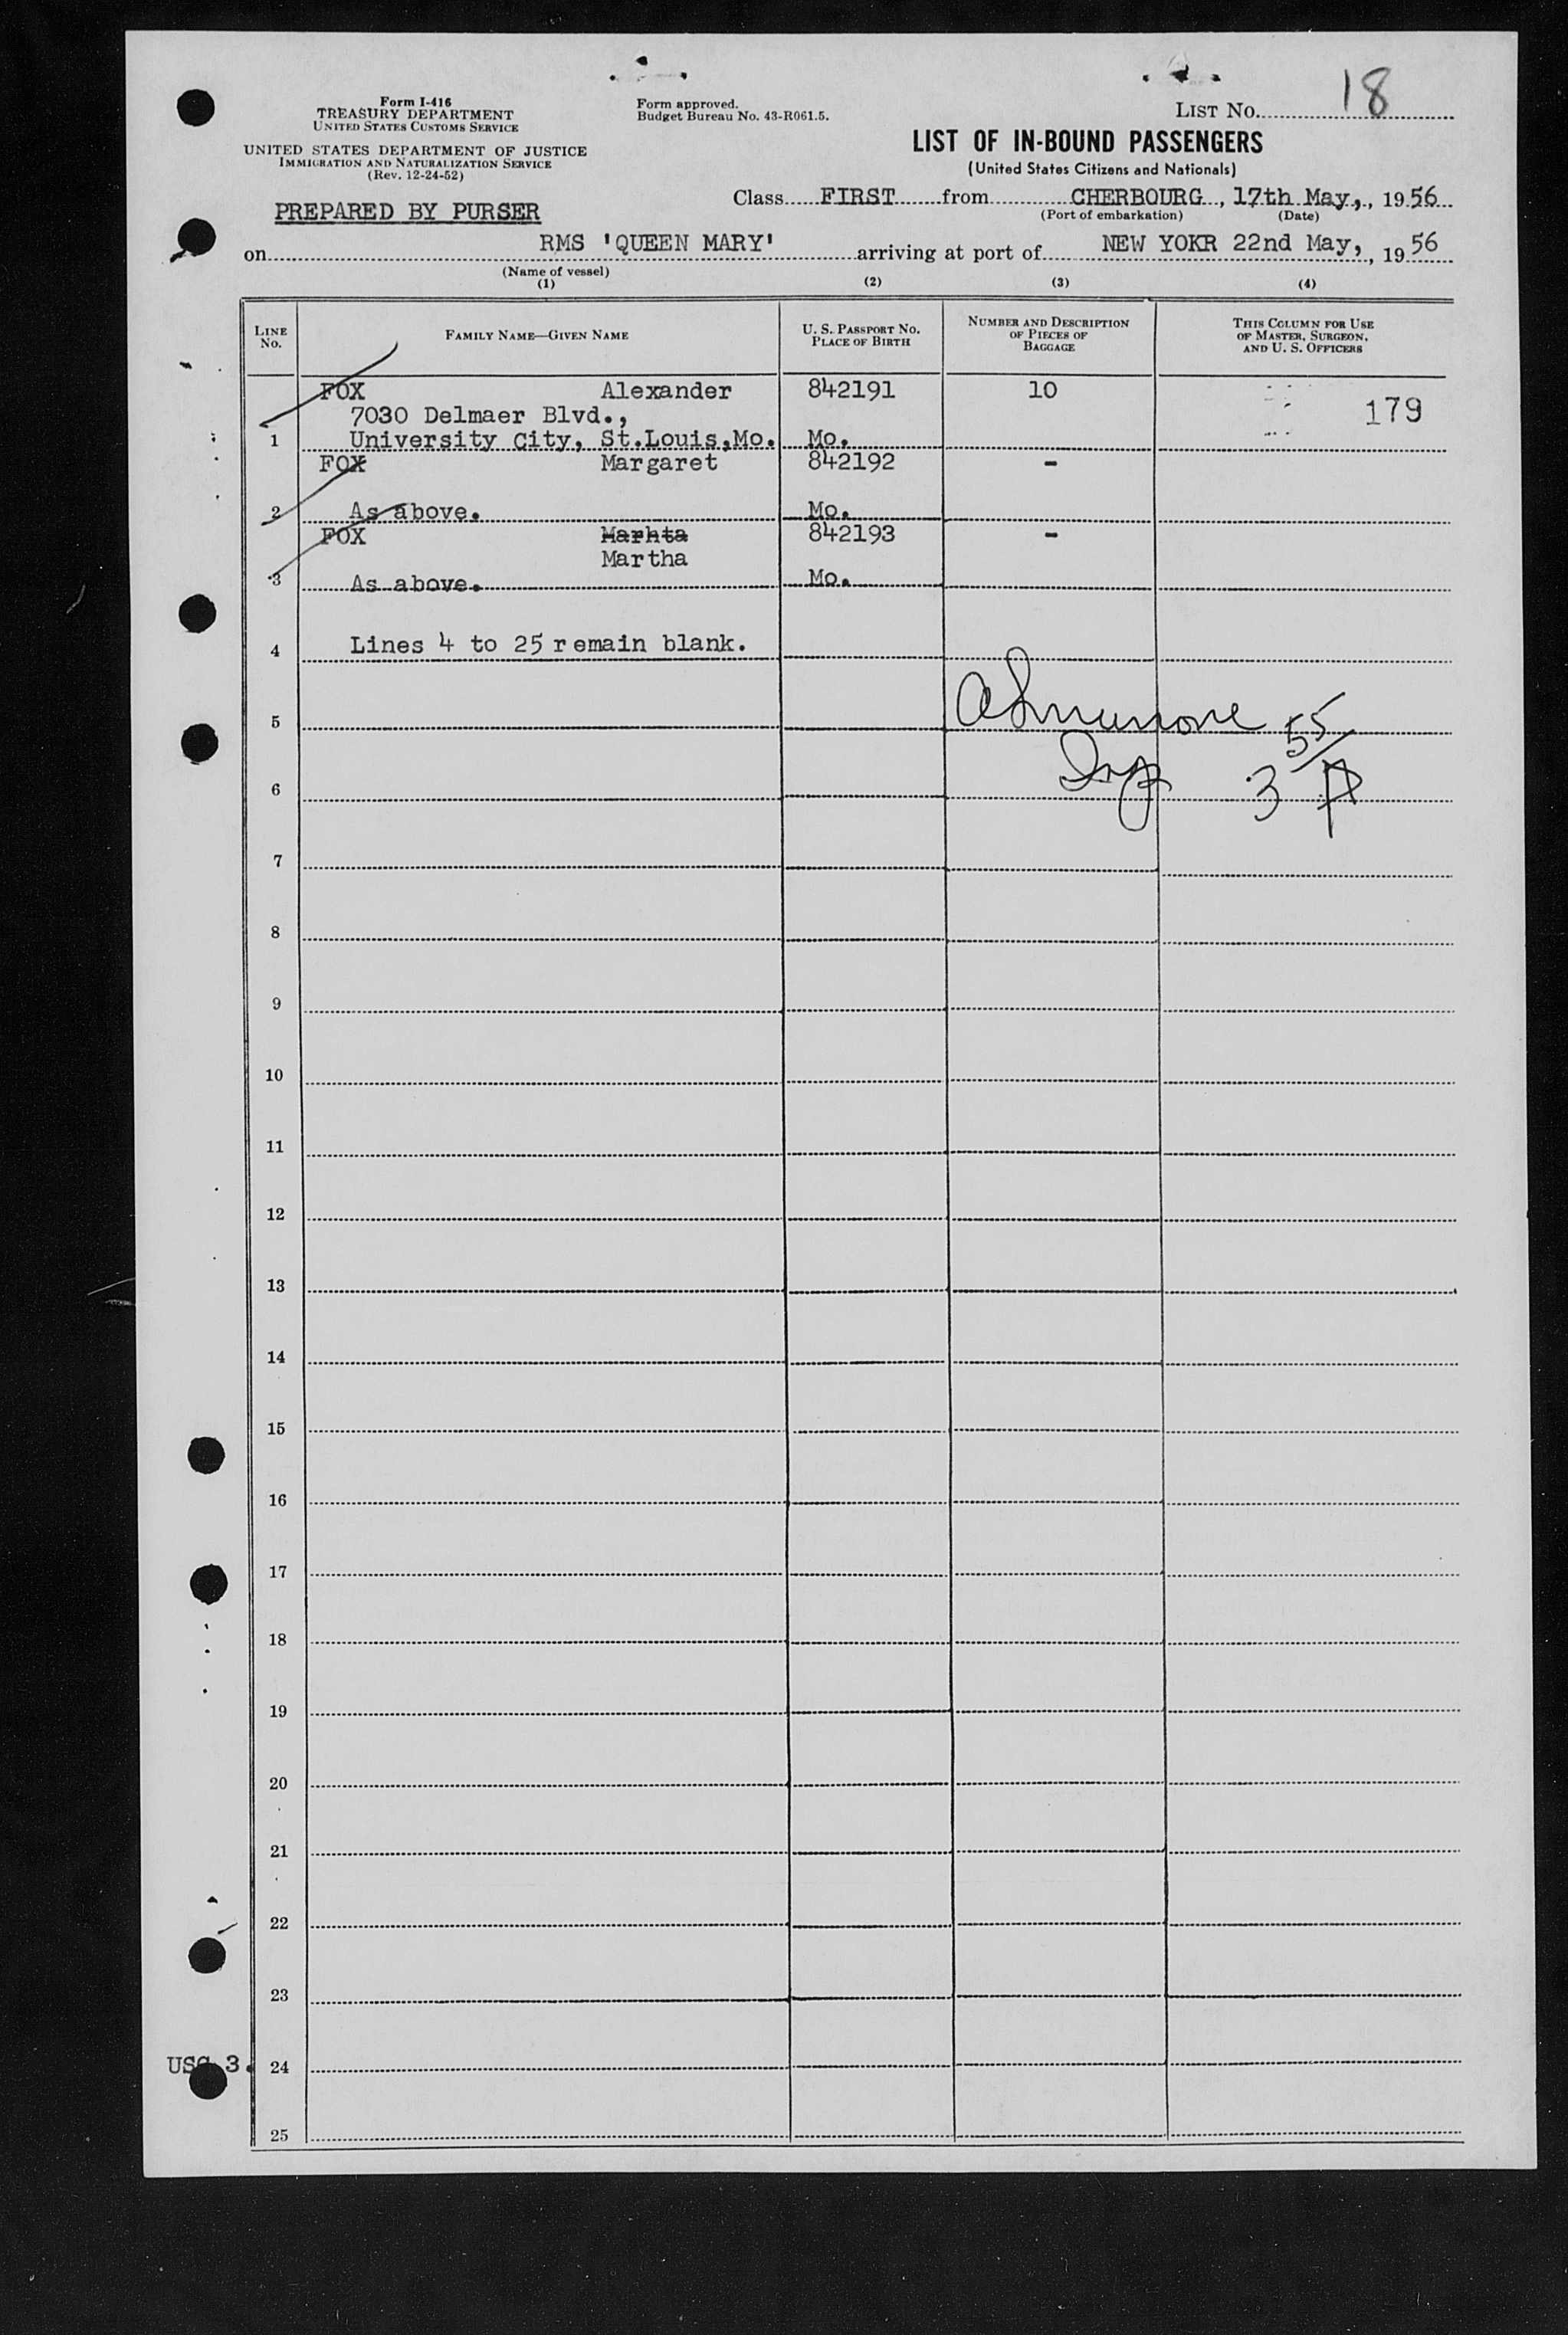 Form I-416
TREASURY DEPARTMENT
UNITED STATES CUSTOMS SERVICE
UNITED STATES DEPARTMENT OF JUSTICE
IMMIGRATION AND NATURALIZATION SERVICE
(Rev. 12-24-52)
PREPARED BY PURSER
Form approved.
Budget Bureau No. 43-R061.5.
LIST No. 18
LIST OF IN-BOUND PASSENGERS
(United States Citizens and Nationals)
Class FIRST from CHERBOURG, 17th May,, 1956
(Port of embarkation) (Date)
on RMS 'QUEEN MARY' arriving at port of NEW YOKR 22nd May,, 1956
(Name of vessel)
(1) (2) (3) (4)
LINE No. FAMILY NAME—GIVEN NAME U. S. PASSPORT No. PLACE OF BIRTH NUMBER AND DESCRIPTION OF PIECES OF BAGGAGE THIS COLUMN FOR USE OF MASTER, SURGEON, AND U. S. OFFICERS
FOX Alexander 842191 10
7030 Delmaer Blvd., 179
1 University City, St.Louis,Mo. Mo.
FOX Margaret 842192 -
2 As above. Mo.
FOX Marhta 842193 -
Martha
3 As above. Mo.
4 Lines 4 to 25 remain blank.
5
55
6 Insp 3 P
7
8
9
10
11
12
13
14
15
16
17
18
19
20
21
22
23
USC 3. 24
25